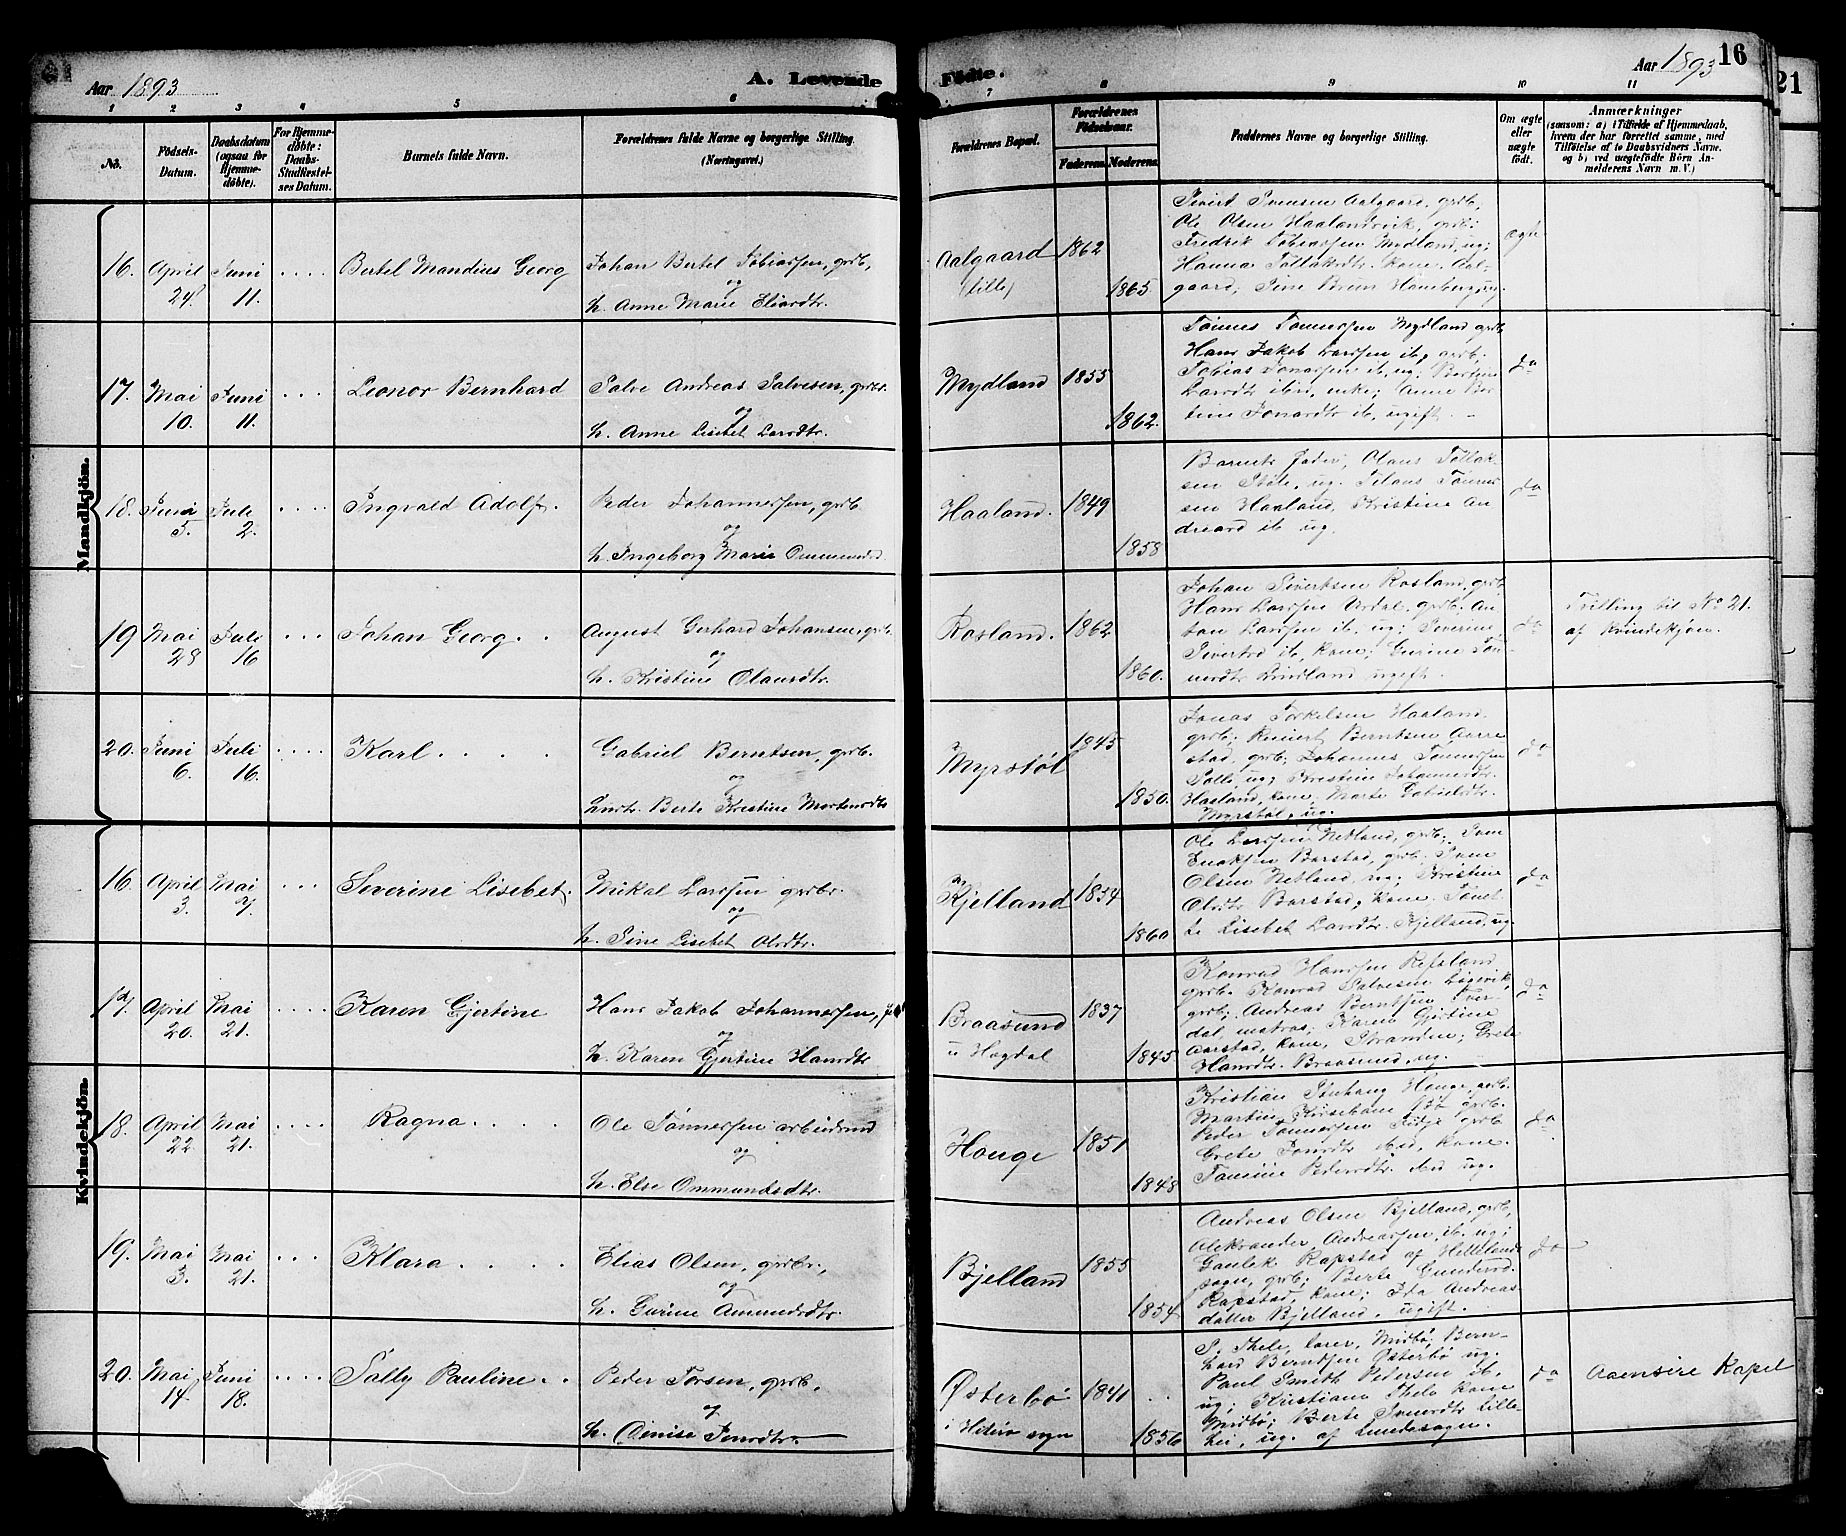 Aar 1893
A. Levende
Födte.
Aar 1893
16
21
1 2 3 4 5 6 7 8 9 10 11
No.
Födsels-Datum.
Daabsdatum (ogsaa för Hjemmedöbte).
For Hjemmedöbte: Daabs-Stadfæstelses Datum.
Barnets fulde Navn.
Forældrenes fulde Navne og borgerlige Stilling (Næringsvei.)
Forældrenes Bopæl.
Forældrenes Födselsaar.
Faderens. Moderens.
Faddernes Navne og borgerlige Stilling.
Om ægte eller uægte födt.
Anmærkninger
(saasom: a) i Tilfælde af Hjemmedaab,
hvem der har forrettet samme, med
Tilföielse af to Daabsvidners Navne.
og b) ved uægtefödte Börn Anmelderens Navn m.V.)
Mandkjön.
16. April 24. Juni 11. Bertel Mandius Georg
Johan Bertel Tobiassen, grdb,
og
h. Anne Marie Eliasdtr.
Aalgaard (lille) 1862 1865.
Sivert Svensen Aalgaard, grdb,
Ole Olsen Haalandvik, grdb;
Fredrik Tobiassen Mydland, ug;
Hanna Tollaksdtr. kone. Aal-
gaard;
ægte
17. Mai 10. Juni 11. Leonor Bernhard
Salve Andreas Salvesen, grdbr.
og
h. Anne Lisebet Larsdtr.
Mydland 1855 1862.
Tönnes Tönnessen Mydland grdb
Hans Jakob Larssen ib, grdb;
Tobias Jonassen ib, ug;
Larsdtr ib, enke; Anne Ber
tine Jonasdtr ib, ugift.
do
18. Juni 5. Juli 2. Ingvald Adolf.
Peder Johannessen, grdb
og
h. Ingeborg Marie Ommundsd.
Haaland. 1849 1858
Barnets fader, Olaus Tollak-
sen Stöle, ug. Tönnes
sen Haaland, Kristine An
dreasd ib ug.
do
19 Mai 28 Juli 16 Johan Georg.
August Gerhard Johansen, grdb.
og
h. Kristine Olausdtr.
Rosland. 1862 1860.
Johan Sivertsen Rosland, grdb
Hans Larssen Urdal, grdb. An
ton Larssen ib, ug; Severine
Sivertsd ib, kone; Gurine Tön-
nesdtr ugift.
do
Tvilling til No 21.
af kvindekjön.
20. Juni 6. Juli 16. Karl.
Gabriel Berntsen, grdb.
og
hustr. Berte Kristine Mortensdtr
Myrstöl 1845 1850.
Jonas Torkelsen Haaland
grdb; Berntsen Aarre
stad, grdb; Johannes Tönnessen
ug; Kristine Johannesdtr.
Haaland, kone. Marte Gabrielsdtr.
Myrstöl, ug.
do
Kvindekjön.
16. April 3. Mai 7. Severine Lisebet.
Mikal Larssen grdbr.
og
h. Sine Lisebet Olsdtr.
Kjelland 1854 1860
Ole Larssen Netland, grdb; Sven
Barstad, grdb; Sven
Olsen Netland, ug; Kristine
Olsdtr Barstad, kone.
Lisebet Larsdtr. Kjelland, ug.
do
17. April 20. Mai 21. Karen Gjertine
Hans Jakob Johannessen,
og
h. Karen Gjertine Hansdtr
Braasund u Hogdal 1837 1845
Konrad Hanssen Refsland
grdb. Konrad Salvesen Løgevik,
grdb; Andreas Berntsen
dal matros; Karen Gjertine
Aarstad, kone, Stranden; Grete
Hansdtr. Braasund, ug.
do
18. April 22 Mai 21. Ragna.
Ole Tönnessen arbeidsmd
og
h. Else Ommundsdtr.
Hauge 1851 1848
Kristian Hauge, grdb.
Martin
Peder Tönnessen grdb
Grete kone.
Pedersdtr. ug.
do
19. Mai 3. Mai 21. Klara.
Elias Olsen, grdbr.,
og
h. Gurine Amundsdtr.
Bjelland 1855 1854
Andreas Olsen Bjelland, grdb,
Aleksander Andreassen, ib. ug;
Gaulek Rapstad af Hellelands
sogn, grdb; Berte Gundersd.
Rapstad, kone; Ida Andreas
datter Bjelland. ugift.
do
20. Mai 14. Juni 18. Sally Pauline.
Peder Torsen, grdb,
og
h.
Østerbø i Hiterø sogn 1841 1856
S. Thele, lærer, Midbö; Bern-
hard Berntsen Østerbö ug.
Paul Smith Pedersen ib.
ug; Kristiane Thele kone
Midbö; Berte Svensdtr Lille-
hei, ug. af Lundesogn.
do
Aaensire Kapel